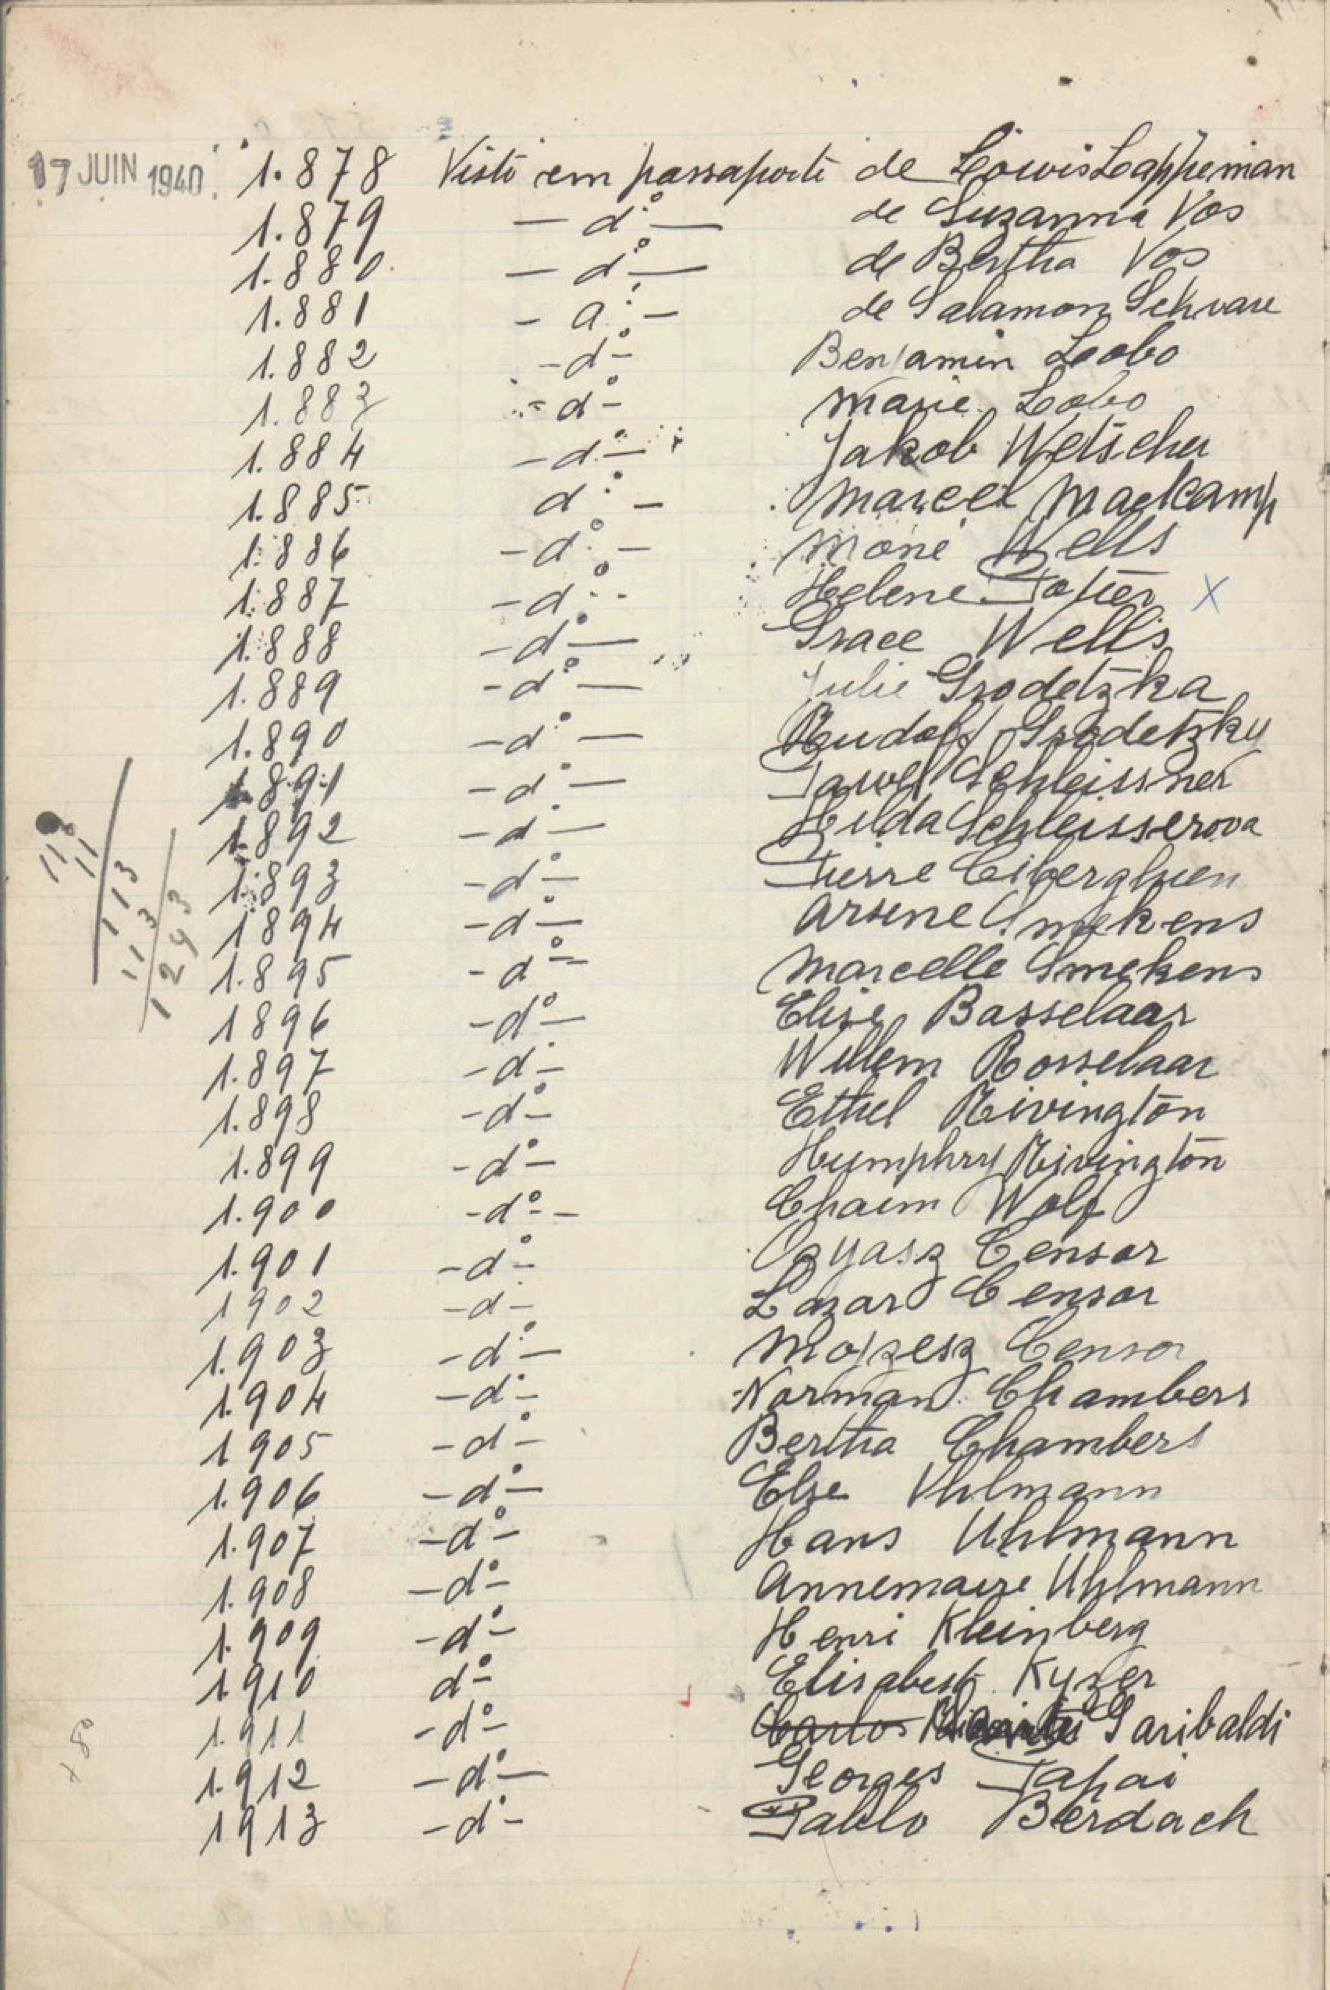 17 JUIN 1940 1.878 Visto em passaporte de Lowis Loappeman
1.879 — dº — de Suzanna Vos
1.880 — dº — de Bertha Vos
1.881 - a: - de Salamon Schvare
1.882 - dº - Benjamin Loobo
1.883 - dº - Marie Lobo
1.884 - dº - Jakob Wetscher
1.885 dº - Marcel Maelcamp
1.886 - dº - Mone Wells
1.887 - dº - Helene X
1.888 - dº - Grace Wells
1.889 - dº - Julie Grodetzka
1.890 - dº - Rudolf Grodetzky
1.891 - dº - Schleissner
1.892 - dº - Hilda Schleisserova
1.893 - dº - Pierre Ciberghien
1894 - dº - Arsene Smekens
1.895 - dº - Marcelle Smekens
1896 - dº - Elise Basselaar
1.897 - dº - Willem Rosselaar
1.898 - dº - Ethel Rivington
1.899 - dº - Humphry Rivington
1.900 - dº - Chaim Wolf
1.901 - dº - Ozyasz Censor
1902 - d - Lazar Censor
1.903 - dº - Mojzesz Censor
1.904 - dº - Norman Chambers
1905 - dº - Bertha Chambers
1.906 - dº - Else Uhlmann
1.907 - dº - Hans Uhlmann
1.908 - dº - Annemaire Uhlmann
1.909 - dº - Henri Kleinberg
1.910 dº - Elisabeth Kyzer
1.911 - dº - Carlos Garibaldi
1.912 - dº - Georges Tapai
1913 - dº - Pablo Berdach
113
113
1243